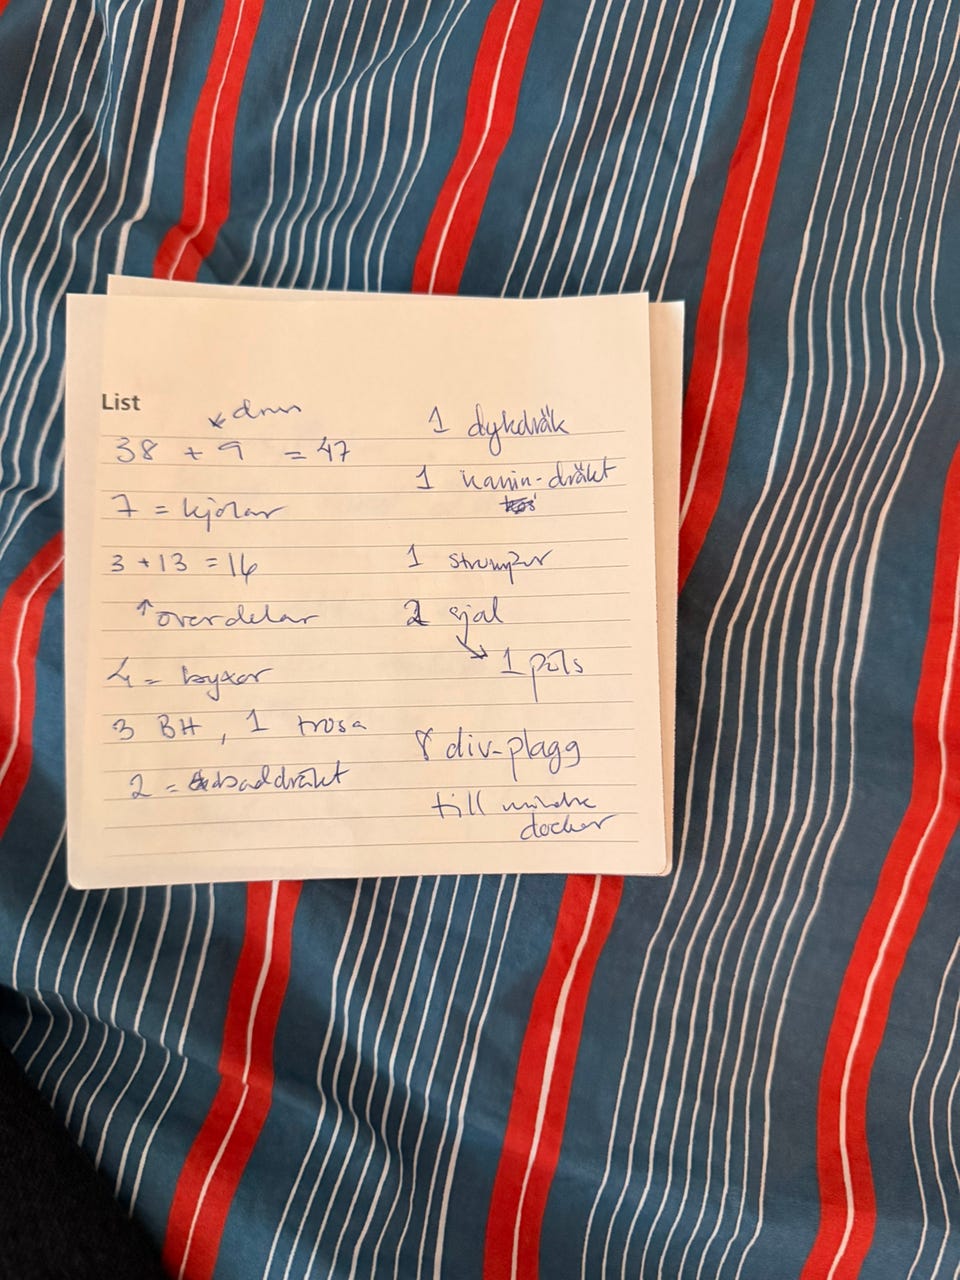 List
38 + 9 = 47
7 = kjolar
3 + 13 = 16
↑ överdelar
4 = byxor
3 BH, 1 trosa
2 = baddräkt
1 dykdräk
1 kanin-dräkt
1 strumpor
2 sjal
↘ 1 päls
8 div-plagg
till mindre
docker